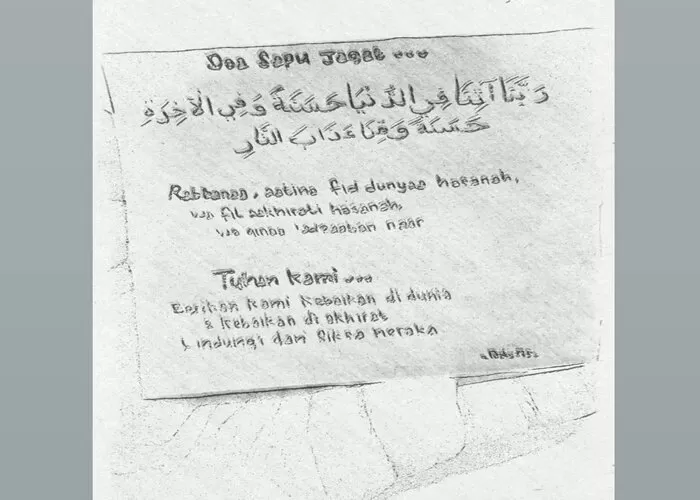 Doa Sapu Jagat ...
رَبَّنَا آتِنَا فِي الدُّنْيَا حَسَنَةً وَفِي الْآخِرَةِ
حَسَنَةً وَقِنَا عَذَابَ النَّارِ
Rabbanaa, aatina fid dunyaa hasanah,
wa fil aakhirati hasanah,
wa qinaa 'adzaaban naar
Tuhan kami ...
Berikan kami kebaikan di dunia
& kebaikan di akhirat
Lindungi dari siksa neraka